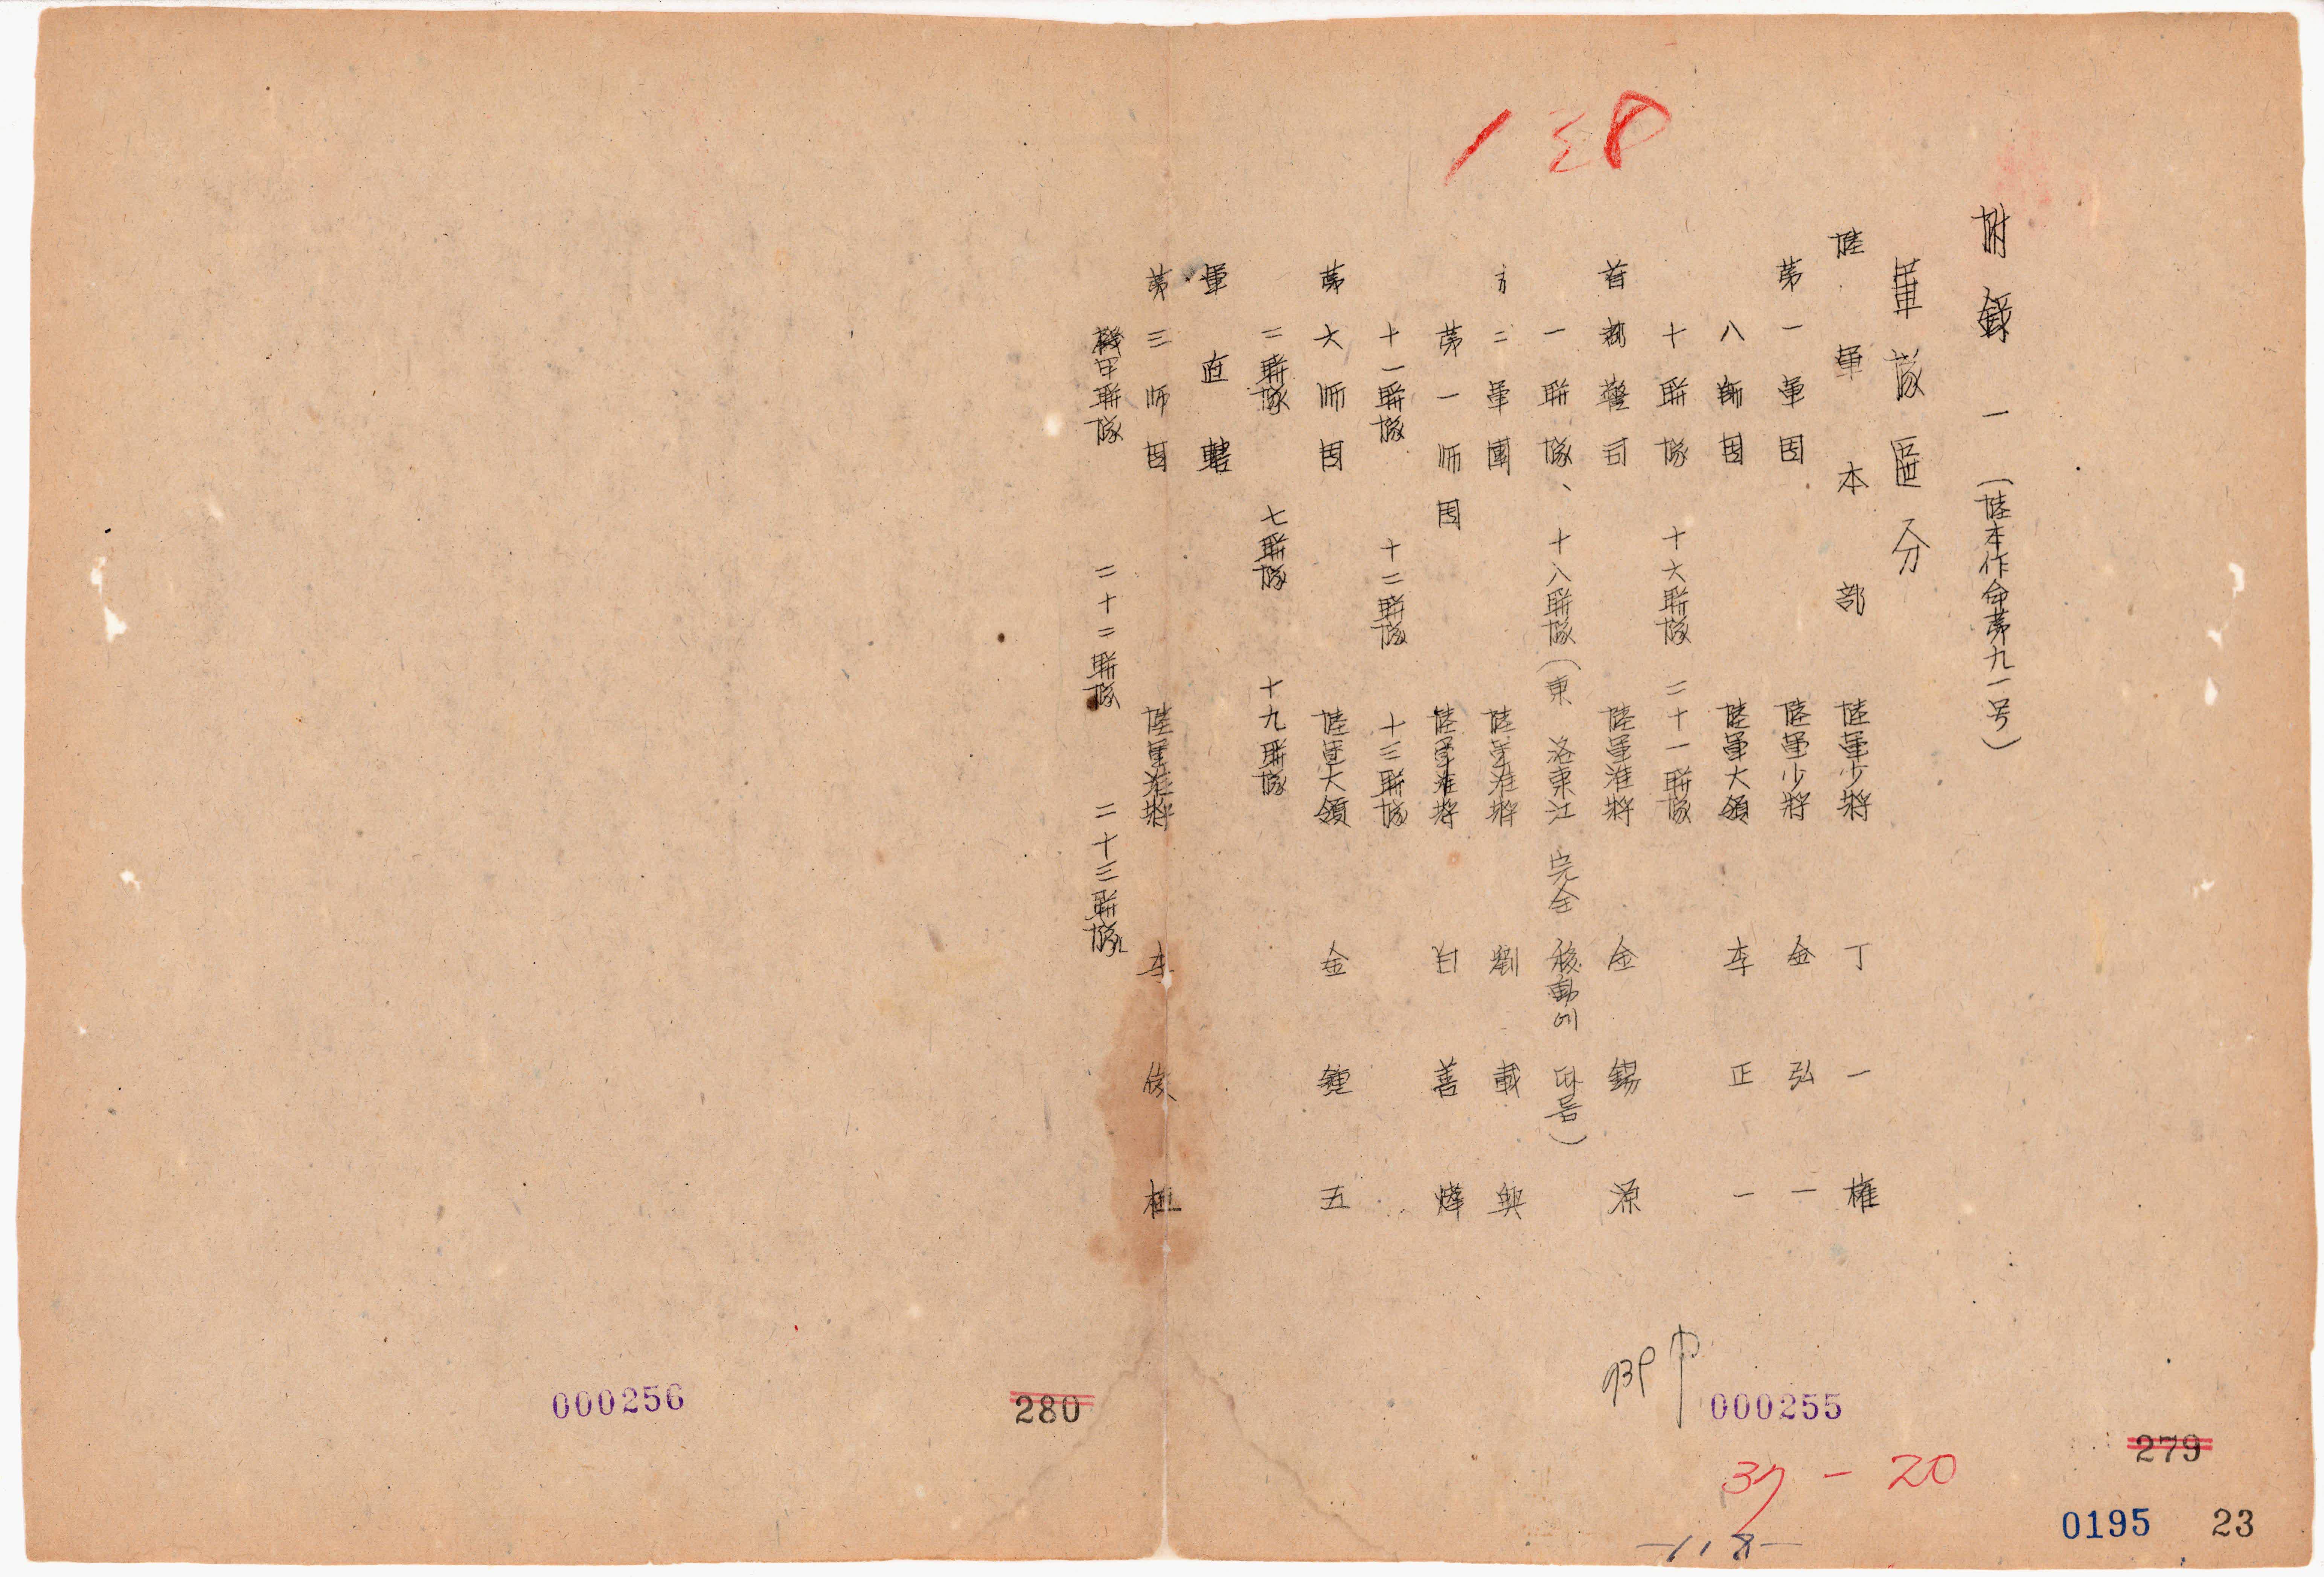 附錄 一 (陸本作命第九一号)
軍隊區分
陸軍本部 陸軍少將 丁一權
第一軍団 陸軍少將 金弘一
八師団 陸軍大領 李正一
十聯隊 十六聯隊 二十一聯隊
首都警司 陸軍准將 金錫源
一聯隊、十八聯隊(東 洛東江 完全 移動에 따름)
二軍團 陸軍准將 劉載興
第一师団 陸軍准將 白善燁
十一聯隊 十二聯隊 十三聯隊
第六师団 陸軍大領 金鍾五
二聯隊 七聯隊 十九聯隊
軍直轄
第三师団 陸軍准將 李俊植
機甲聯隊 二十二聯隊 二十三聯隊
138
000256
280
000255
279
37-20
0195
23
-118-